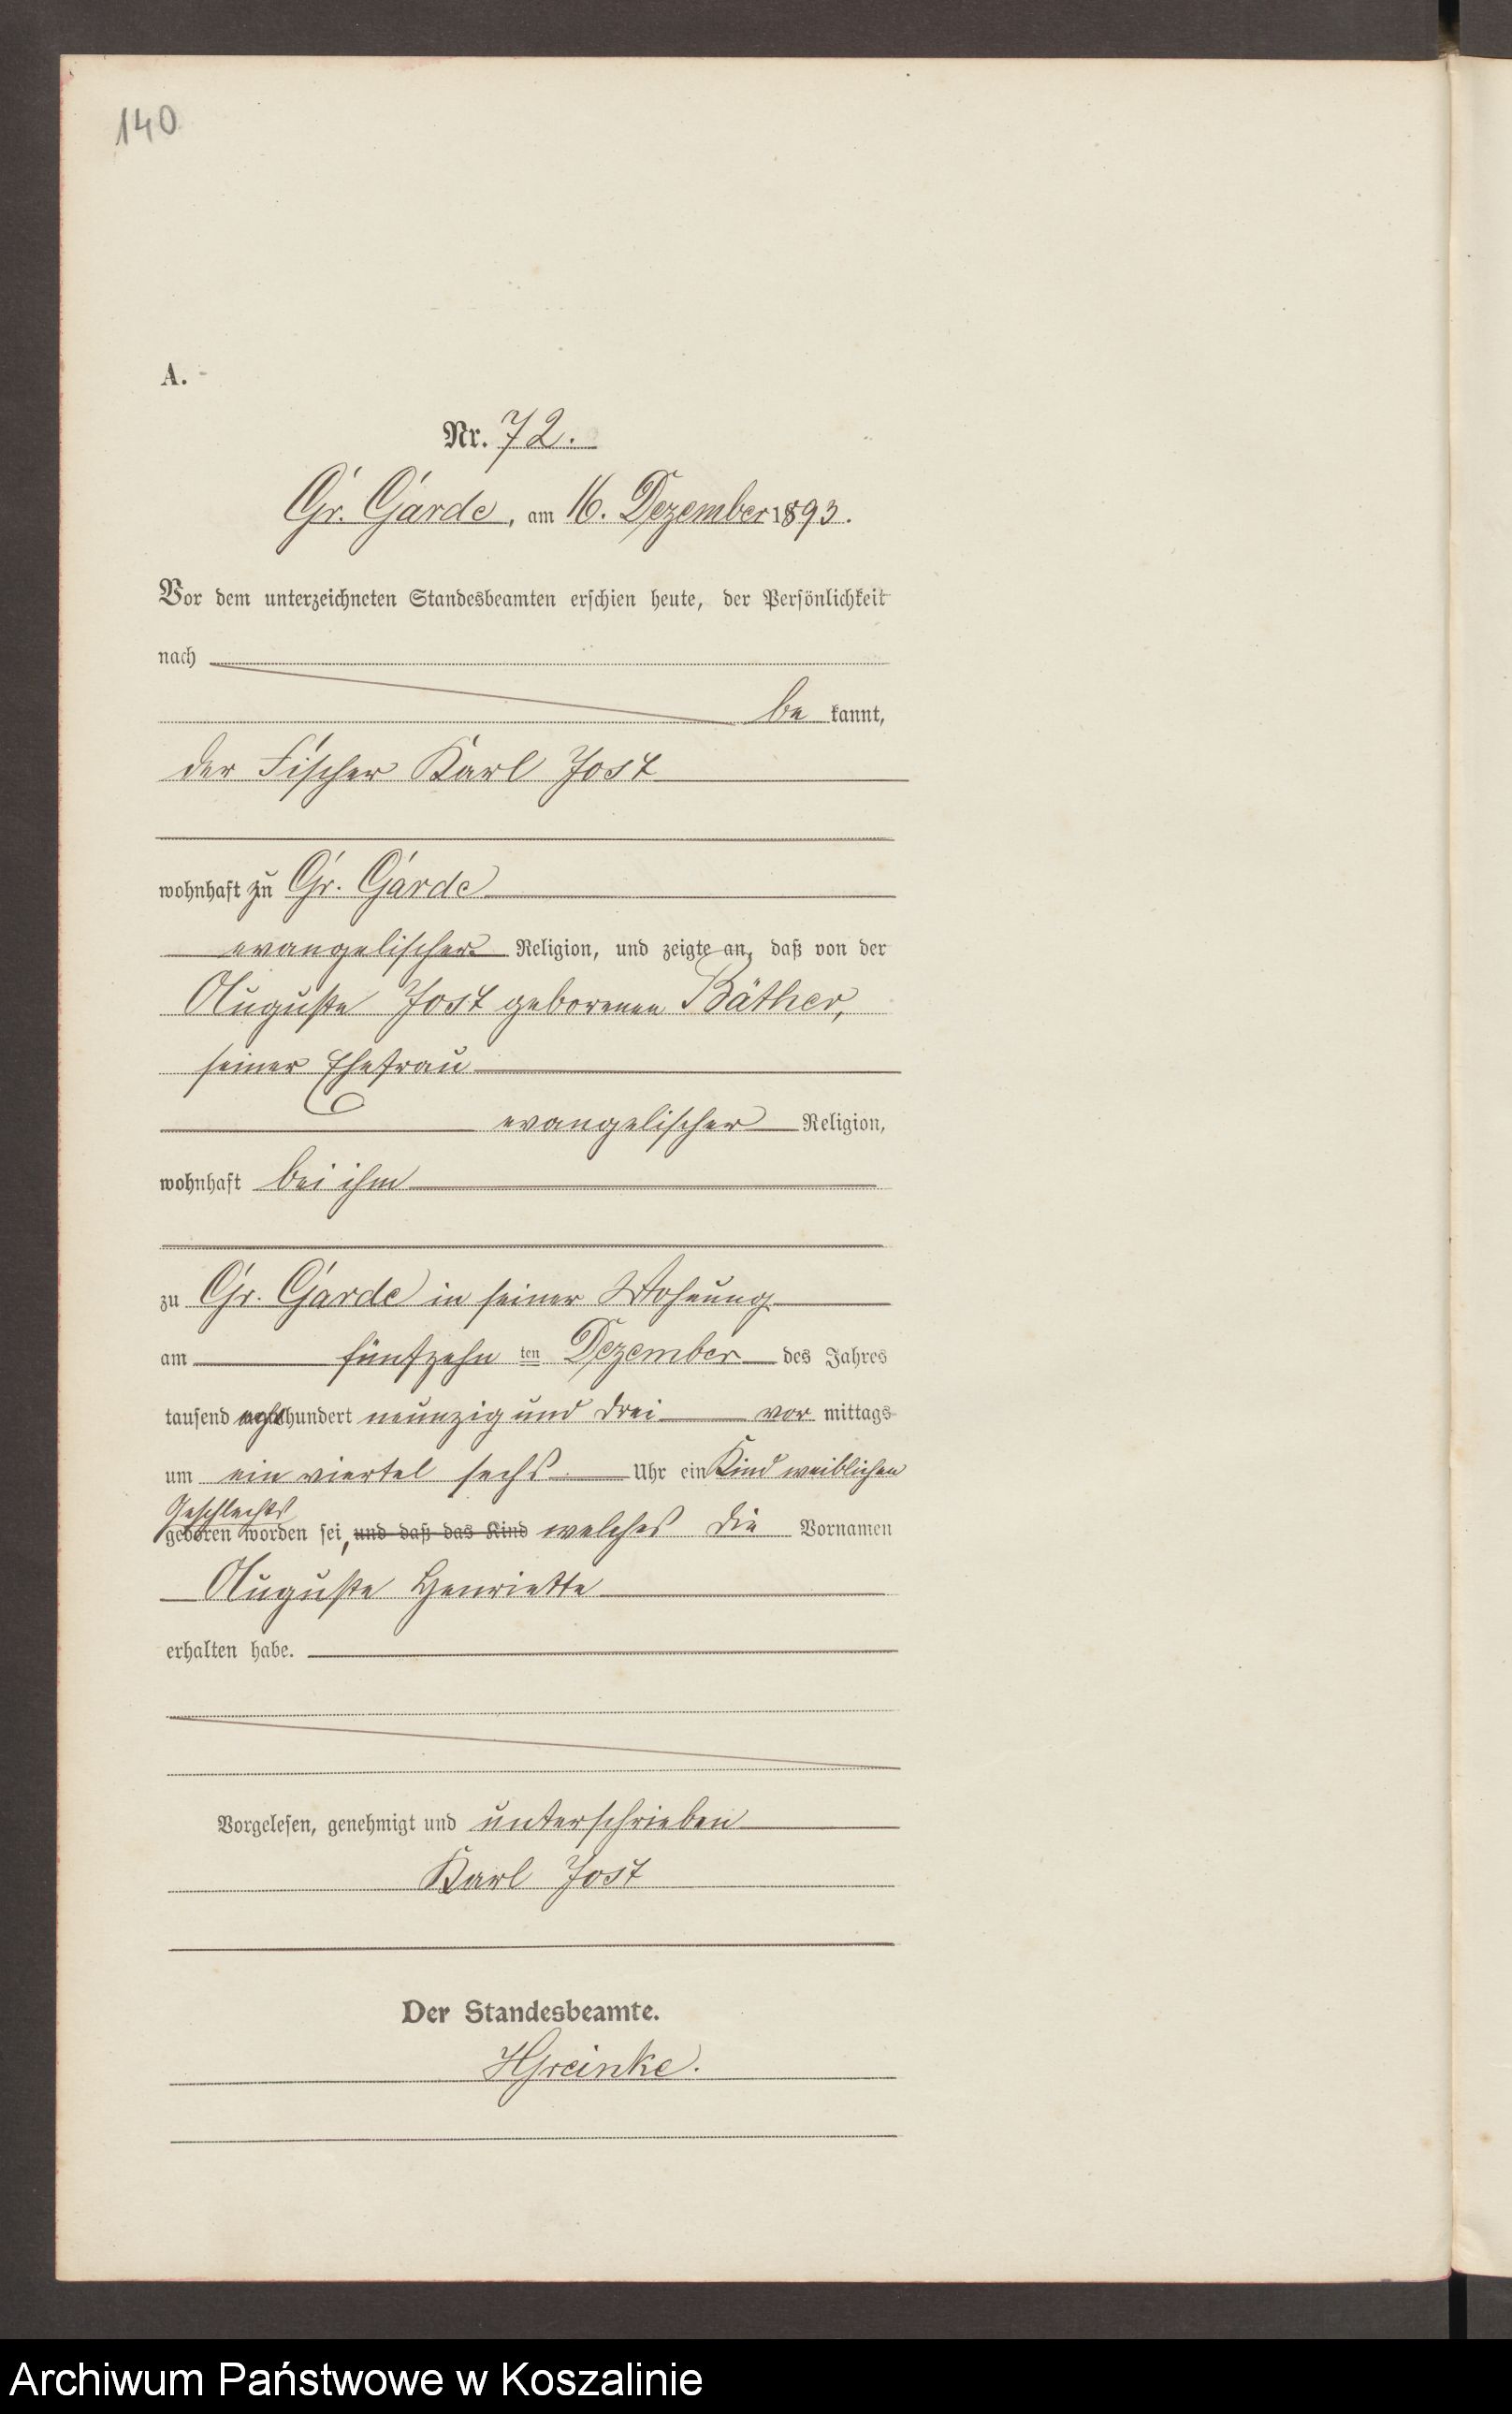 140
A.
Nr. 72.
Gr. Garde, am 16. Dezember 1893.
Vor dem unterzeichneten Standesbeamten erschien heute, der Persönlichkeit
nach
be kannt,
der Fischer Karl Jost
wohnhaft zu Gr. Garde
evangelischer Religion, und zeigte an, daß von der
Auguste Jost geborenen Bäther,
seiner Ehefrau
evangelischer Religion,
wohnhaft bei ihm
zu Gr. Garde in seiner Wohnung
am fünfzehn ten Dezember des Jahres
tausend achthundert neunzig und drei vor mittags
um ein viertel sechs Uhr ein Kind weiblichen
Geschlechts
geboren worden sei, und daß das Kind welches die Vornamen
Auguste Henriette
erhalten habe.
Vorgelesen, genehmigt und unterschrieben
Karl Jost
Der Standesbeamte.
Archiwum Państwowe w Koszalinie